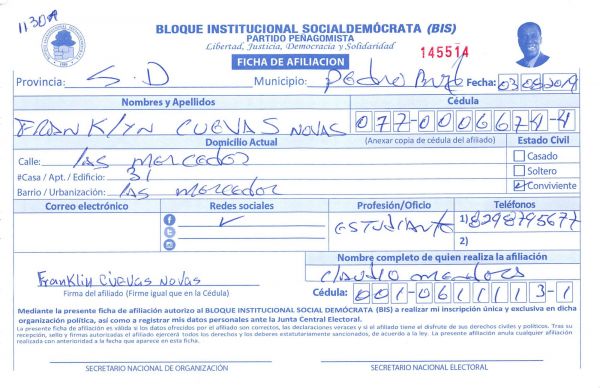 1130A
BLOQUE INSTITUCIONAL SOCIALDEMÓCRATA (BIS)
PARTIDO PEÑAGOMISTA
Libertad, Justicia, Democracia y Solidaridad
145514
FICHA DE AFILIACION
Provincia: S.D Municipio: Pedro Brand Fecha: 03 08 2019
Nombres y Apellidos Cédula
FRANKLYN CUEVAS NOVAS 077-0006674-4
Domicilio Actual (Anexar copia de cédula del afiliado) Estado Civil
Calle: LAS MERCEDES Casado
#Casa / Apt. / Edificio: 31 Soltero
Barrio / Urbanización: LAS MERCEDES Conviviente
Correo electrónico Redes sociales Profesión/Oficio Teléfonos
ESTUDIANTE 1) 8298795677
2)
Nombre completo de quien realiza la afiliación
Franklin Cuevas Novas CLAUDIO
Firma del afiliado (Firme igual que en la Cédula) Cédula: 001-0611113-1
Mediante la presente ficha de afiliación autorizo al BLOQUE INSTITUCIONAL SOCIAL DEMÓCRATA (BIS) a realizar mi inscripción única y exclusiva en dicha
organización política, así como a registrar mis datos personales ante la Junta Central Electoral.
La presente ficha de afiliación es válida si los datos ofrecidos por el afiliado son correctos, las declaraciones veraces y si el afiliado tiene el disfrute de sus derechos civiles y políticos. Tras su
recepción, sello y firmas autorizadas el afiliado ejercerá todos los derechos y los deberes estatutariamente sancionados, de acuerdo a la ley. La presente afiliación anula cualquier afiliación
realizada con anterioridad a la fecha que aparece en esta ficha.
SECRETARIO NACIONAL DE ORGANIZACIÓN SECRETARIO NACIONAL ELECTORAL